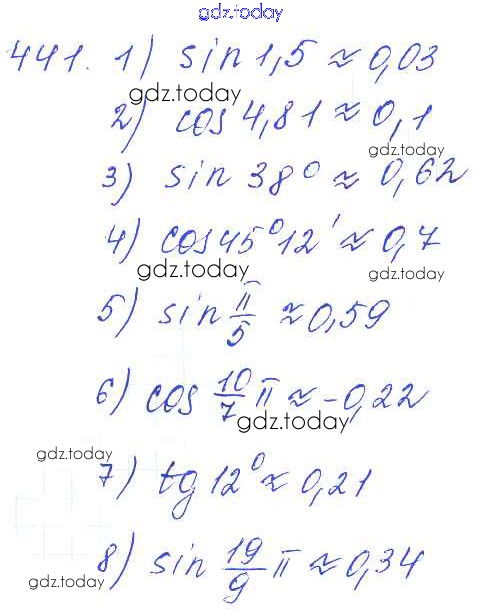 gdz.today
441. 1) sin 1,5 ≈ 0,03
gdz.today
2) cos 4,81 ≈ 0,1
gdz.today
3) sin 38° ≈ 0,62
4) cos 45°12' ≈ 0,7
gdz.today
gdz.today
5) sin π/5 ≈ 0,59
6) cos 10/7 π ≈ -0,22
gdz.today
gdz.today
7) tg 12° ≈ 0,21
8) sin 19/9 π ≈ 0,34
gdz.today
gdz.today